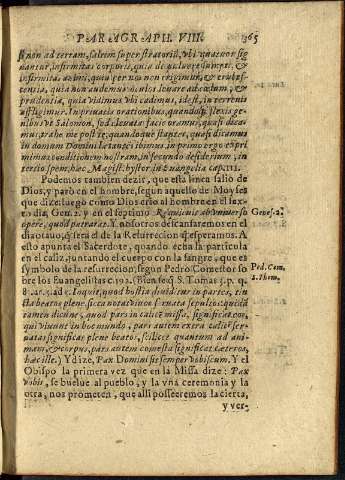 PARAGRAPH. VIII. 365
non ad terram, saltem super stratoriũ, vbi quatuor sig
nantur, infirmitas corporis, quia de puluere sumpti, &
infirmitas animi, quia per nos non erigimur, & erubes-
centia, quia non audemus oculos leuare ad cœlum, &
prudentia, quia vidimus vbi cadimus, idest, in terrenis
us. In priuatis orationibus, quandoq; flexis ge-
nibus vt Salomon, sed leuata facie oramus, quasi dica-
mus; trahe me post te; quandoque stantes, quasi dicamus
in domum Domini lætantes ibimus, in primo ergo expri
mimus conditionem nostram, in secundo desiderium, in
tertio spem, hæc Magist. hystor in Euangelia cap. 111.
Podemos tambien dezir, que esta linea salio de
Dios, y parò en el hombre, segun aquello de Moyses
que dize: luego como Dios criò al hombre en el sex-
to dia, Gen. 2. y en el septimo Requieuit ab vniuerso
opere, quod patrarat. Y nosotros descansaremos en el
dia otauo, q̃ serà el de la Resurreccion q̃ esperamos. A
esto apunta el Sacerdote, quando echa la particula
en el caliz, juntando el cuerpo con la sangre, que es
symbolo de la resurrecion, segun Pedro Comestor so
bre los Euangelistas c. 192. (Bien se q̃ S. Tomas 3. p. q.
Loquit, quod hostia diuiditur in partes,
sta beatos plene, sicca notat viuos seruata sepultos: quidã
tamen dicunt, quod pars in calice missa, significat eos,
qui viuunt in hoc mundo, pars autem extra calicẽ ser-
uata significat plene beatos, scilicet quantum ad ani-
mam, & corpus, pars autem comesta significat cæteros,
hæc ille.) Y dize, Pax Domini sit semper vobiscum. Y el
Obispo la primera vez que en la Missa dize: Pax
vobis, se buelue al pueblo, y la vna ceremonia y la
otra, nos prometen, que alli posseeremos la cierta,
y ver-
Genes. 2.
Ped. Com.
S. Thom.